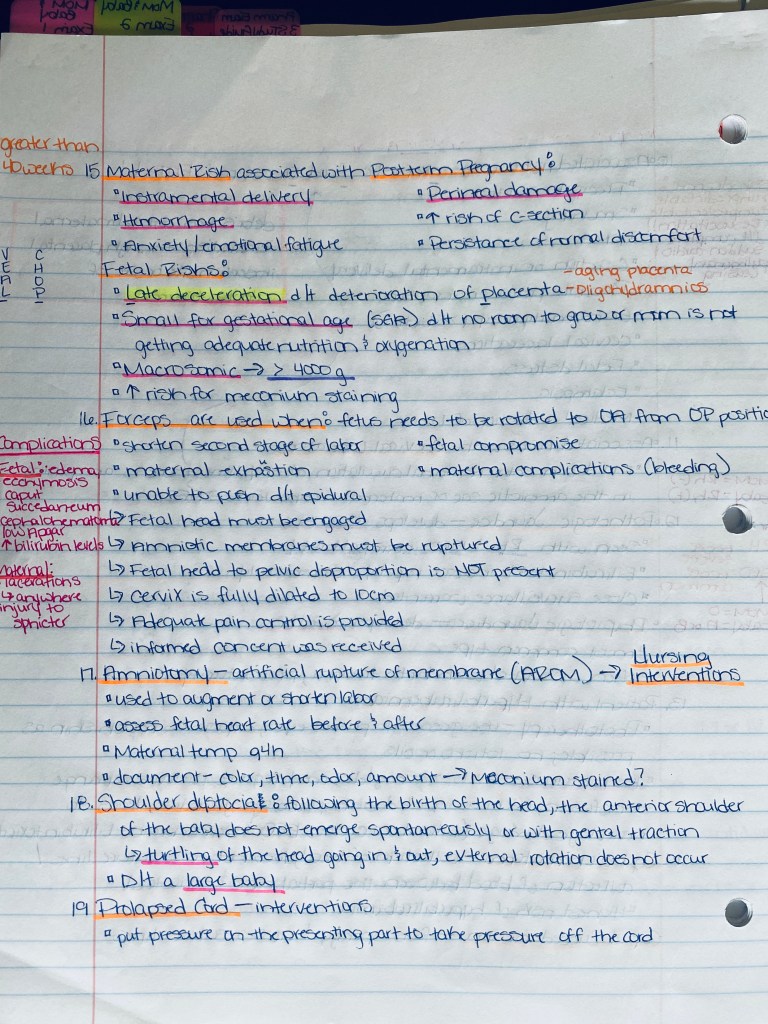 greater than
40 weeks
15 Maternal Risk associated with Postterm Pregnancy:
Instramental delivery
Perineal damage
Hemorrhage
↑ risk of c-section
Anxiety/emotional fatigue
Persistance of normal discomfort
V C
E H
A O
L P
Fetal Risks:
- aging placenta
Late deceleration d/t deterioration of placenta - Oligohydramnios
Small for gestational age (SGA) d/t no room to grow or mom is not
getting adequate nutrition & oxygenation
Macrosomic → > 4000g
↑ risk for meconium staining
16. Forceps are used when: fetus needs to be rotated to OA from OP positio
shorten second stage of labor
fetal compromise
maternal exhastion
maternal complications (bleeding)
unable to push d/t epidural
↳ Fetal head must be engaged
↳ Amniotic membranes must be ruptured
↳ Fetal head to pelvic disproportion is NOT present
↳ cervix is fully dilated to 10cm
↳ Adequate pain control is provided
↳ informed concent was received
Complications
Fetal: edema
ecchymosis
caput
succedaneum
cephalohematoma
low Apgar
↑ bilirubin levels
Maternal:
lacerations
↳ anywhere
injury to
sphicter
17. Amniotomy - artificial rupture of membrane (AROM) → Nursing
Interventions
used to augment or shorten labor
assess fetal heart rate before & after
Maternal temp q4h
document - color, time, odor, amount → Meconium stained?
18. Shoulder dystocia: following the birth of the head, the anterior shoulder
of the baby does not emerge spontaneously or with gental traction
↳ turtling of the head going in & out, external rotation does not occur
D/t a large baby
19 Prolapsed Cord - interventions
put pressure on the presenting part to take pressure off the cord